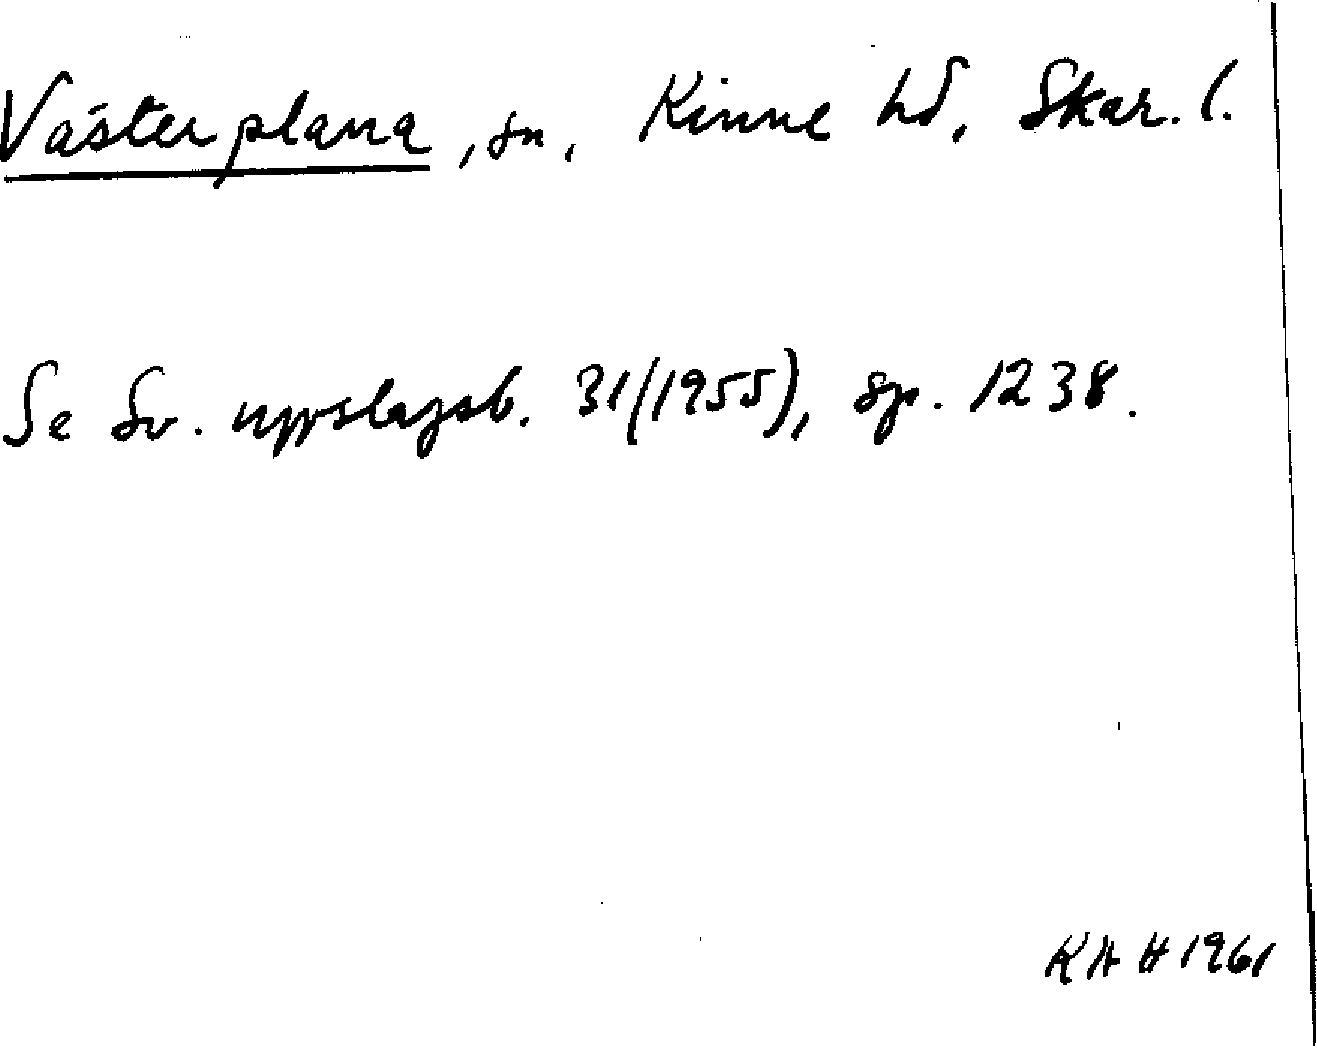 Västerplana, sn, Kinne hd, Skar. l.
Se Sv. uppslagsb. 31 (1955), sp. 1238.
KAH 1961